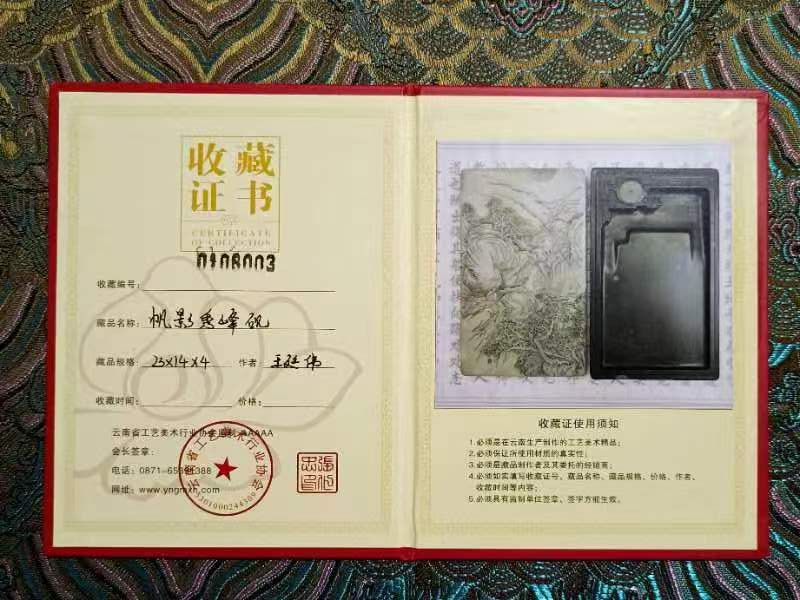 收藏
证书
CERTIFICATE
OF COLLECTION
0108003
收藏编号:
藏品名称: 帆影秀峰砚
藏品规格: 23×14×4 作者: 王廷伟
收藏时间: 价格:
云南省工艺美术行业协会
AAAAA
会长签章:
电话: 0871-65 388
网址: www.yngmxh.com
云南省工艺美术行业协会
5301000244509
收藏证使用须知
1.必须是在云南生产制作的工艺美术精品;
2.必须保证所使用材质的真实性;
3.必须是藏品制作者及其委托的经销商;
4.必须如实填写收藏证号、藏品名称、藏品规格、价格、作者、
收藏时间等内容;
5.必须具有监制单位签章、签字方能生效。